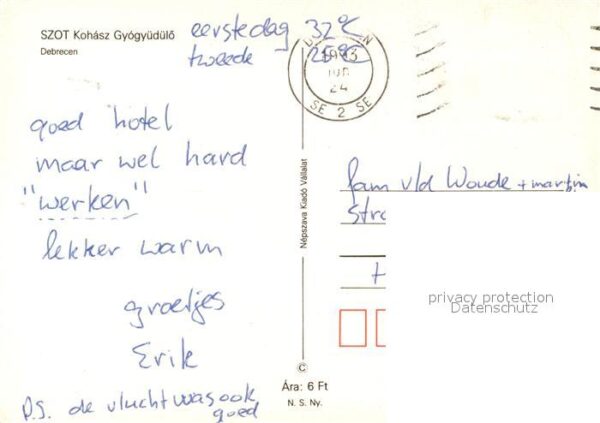 SZOT Kohász Gyógyüdülő
Debrecen
eerste dag 32°C
tweede 25°C
goed hotel
maar wel hard
"werken"
lekker warm
groetjes
Erik
P.S. de vlucht was ook
goed
24
SE 2 SE
Népszava Kiadó Vállalat
fam v/d Woude + martin
stra
H
privacy protection
Datenschutz
©
Ára: 6 Ft
N. S. Ny.